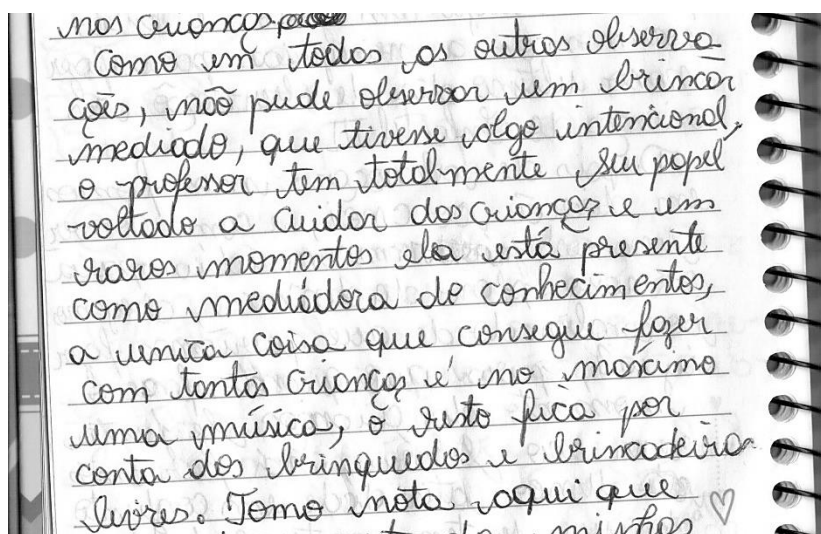 nas crianças
Como em todas as outras observa
ções, não pude observar um brincar
mediado, que tivesse algo intencional,
o professor tem totalmente seu papel
voltado a cuidar das crianças e em
raros momentos ela está presente
como mediadora de conhecimentos,
a unica coisa que consegue fazer
com tantas crianças é no máximo
uma música, o resto fica por
conta dos brinquedos e brincadeira
livres. Tomo nota aqui que
minhas